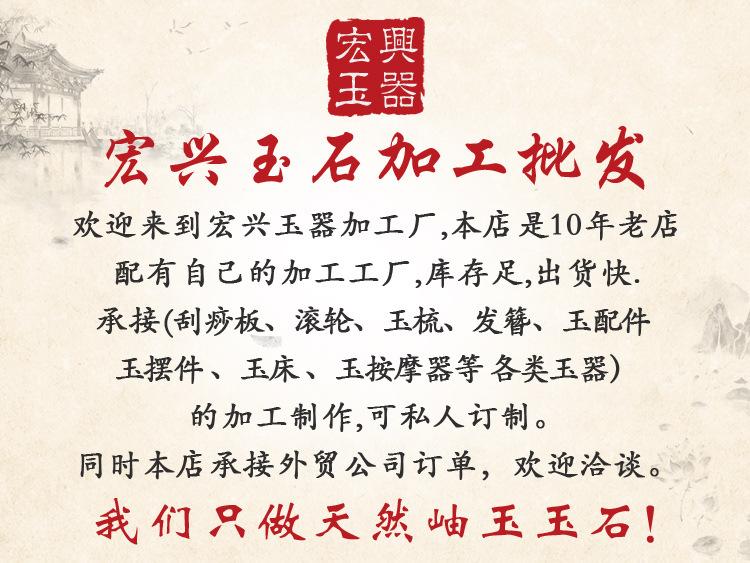 宏興
玉器
宏兴玉石加工批发
欢迎来到宏兴玉器加工厂,本店是10年老店
配有自己的加工工厂,库存足,出货快.
承接(刮痧板、滚轮、玉梳、发簪、玉配件
玉摆件、玉床、玉按摩器等 各类玉器)
的加工制作,可私人订制。
同时本店承接外贸公司订单，欢迎洽谈。
我们只做天然岫玉玉石!